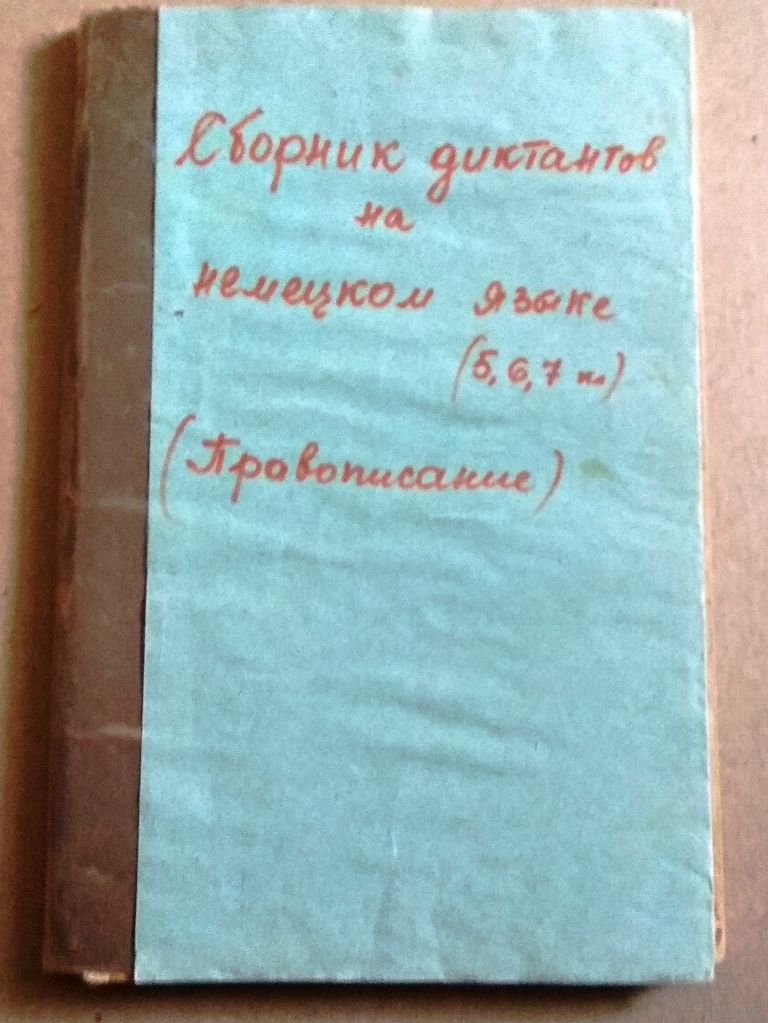 Сборник диктантов
на
немецком языке
(5, 6, 7 кл)
(Правописание)